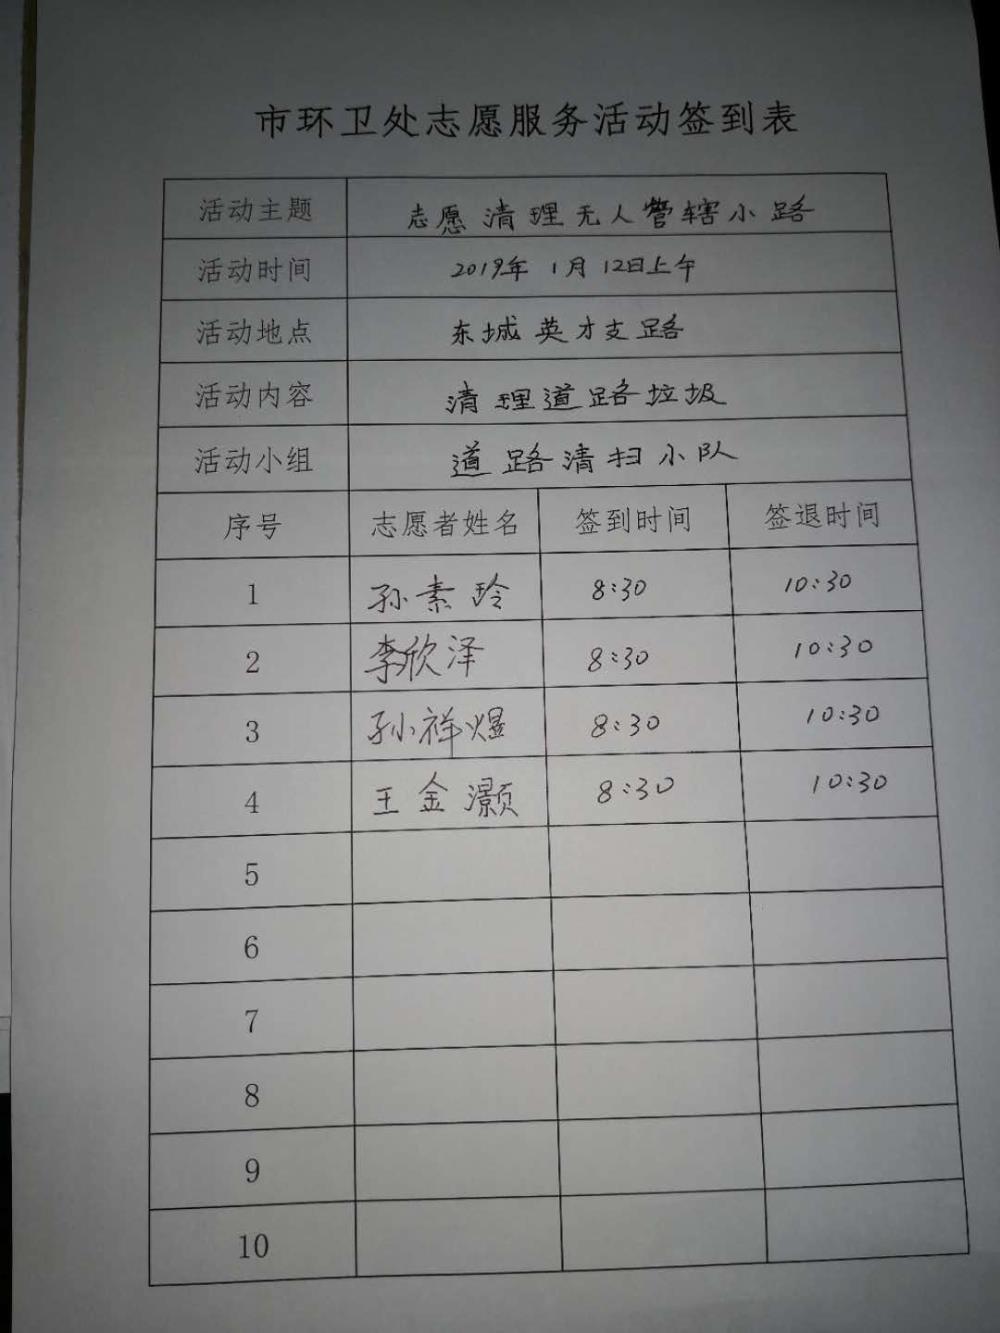 市环卫处志愿服务活动签到表
活动主题 志愿清理无人管辖小路
活动时间 2019年1月12日上午
活动地点 东城英才支路
活动内容 清理道路垃圾
活动小组 道路清扫小队
序号 志愿者姓名 签到时间 签退时间
1 孙素玲 8:30 10:30
2 李欣泽 8:30 10:30
3 孙祥煜 8:30 10:30
4 王金灏 8:30 10:30
5
6
7
8
9
10